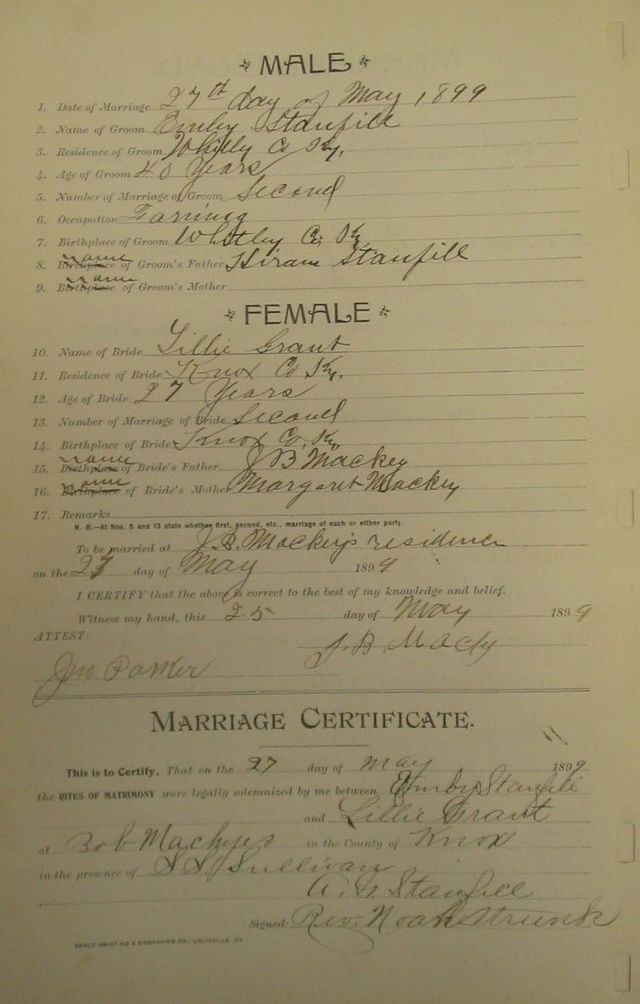 MALE
1. Date of Marriage 27th day of May 1899
2. Name of Groom Emby Stanfill
3. Residence of Groom Whitly Co Ky.
4. Age of Groom 40 Years
5. Number of Marriage of Groom Second
6. Occupation Farming
7. Birthplace of Groom Whitley Co, Ky
8. Birthplace name of Groom's Father Hiram Stanfill
9. Birthplace name of Groom's Mother
FEMALE
10. Name of Bride Lillie Grant
11. Residence of Bride Knox Co Ky.
12. Age of Bride 27 Years
13. Number of Marriage of Bride Second
14. Birthplace of Bride Knox Co. Ky.
15. Birthplace name of Bride's Father J B Mackey
16. Birthplace name of Bride's Mother Margaret Mackey
17. Remarks
N. B.—At Nos. 5 and 13 state whether first, second, etc., marriage of each or either party.
To be married at J. B. Mackey's residence
on the 27 day of May 1899
I CERTIFY that the above is correct to the best of my knowledge and belief.
Witness my hand, this 25 day of May 1899
ATTEST: J. B. Macky
Jno Parker
MARRIAGE CERTIFICATE.
This is to Certify, That on the 27 day of May 1899
the RITES OF MATRIMONY were legally solemnized by me between Emby Stanfill
and Lillie Grant
at Bob Mackyes in the County of Knox
in the presence of Sullivan
Stanfill
Signed: Rev. Noah Strunk
PRINTING & ENGRAVING CO., LOUISVILLE, KY.